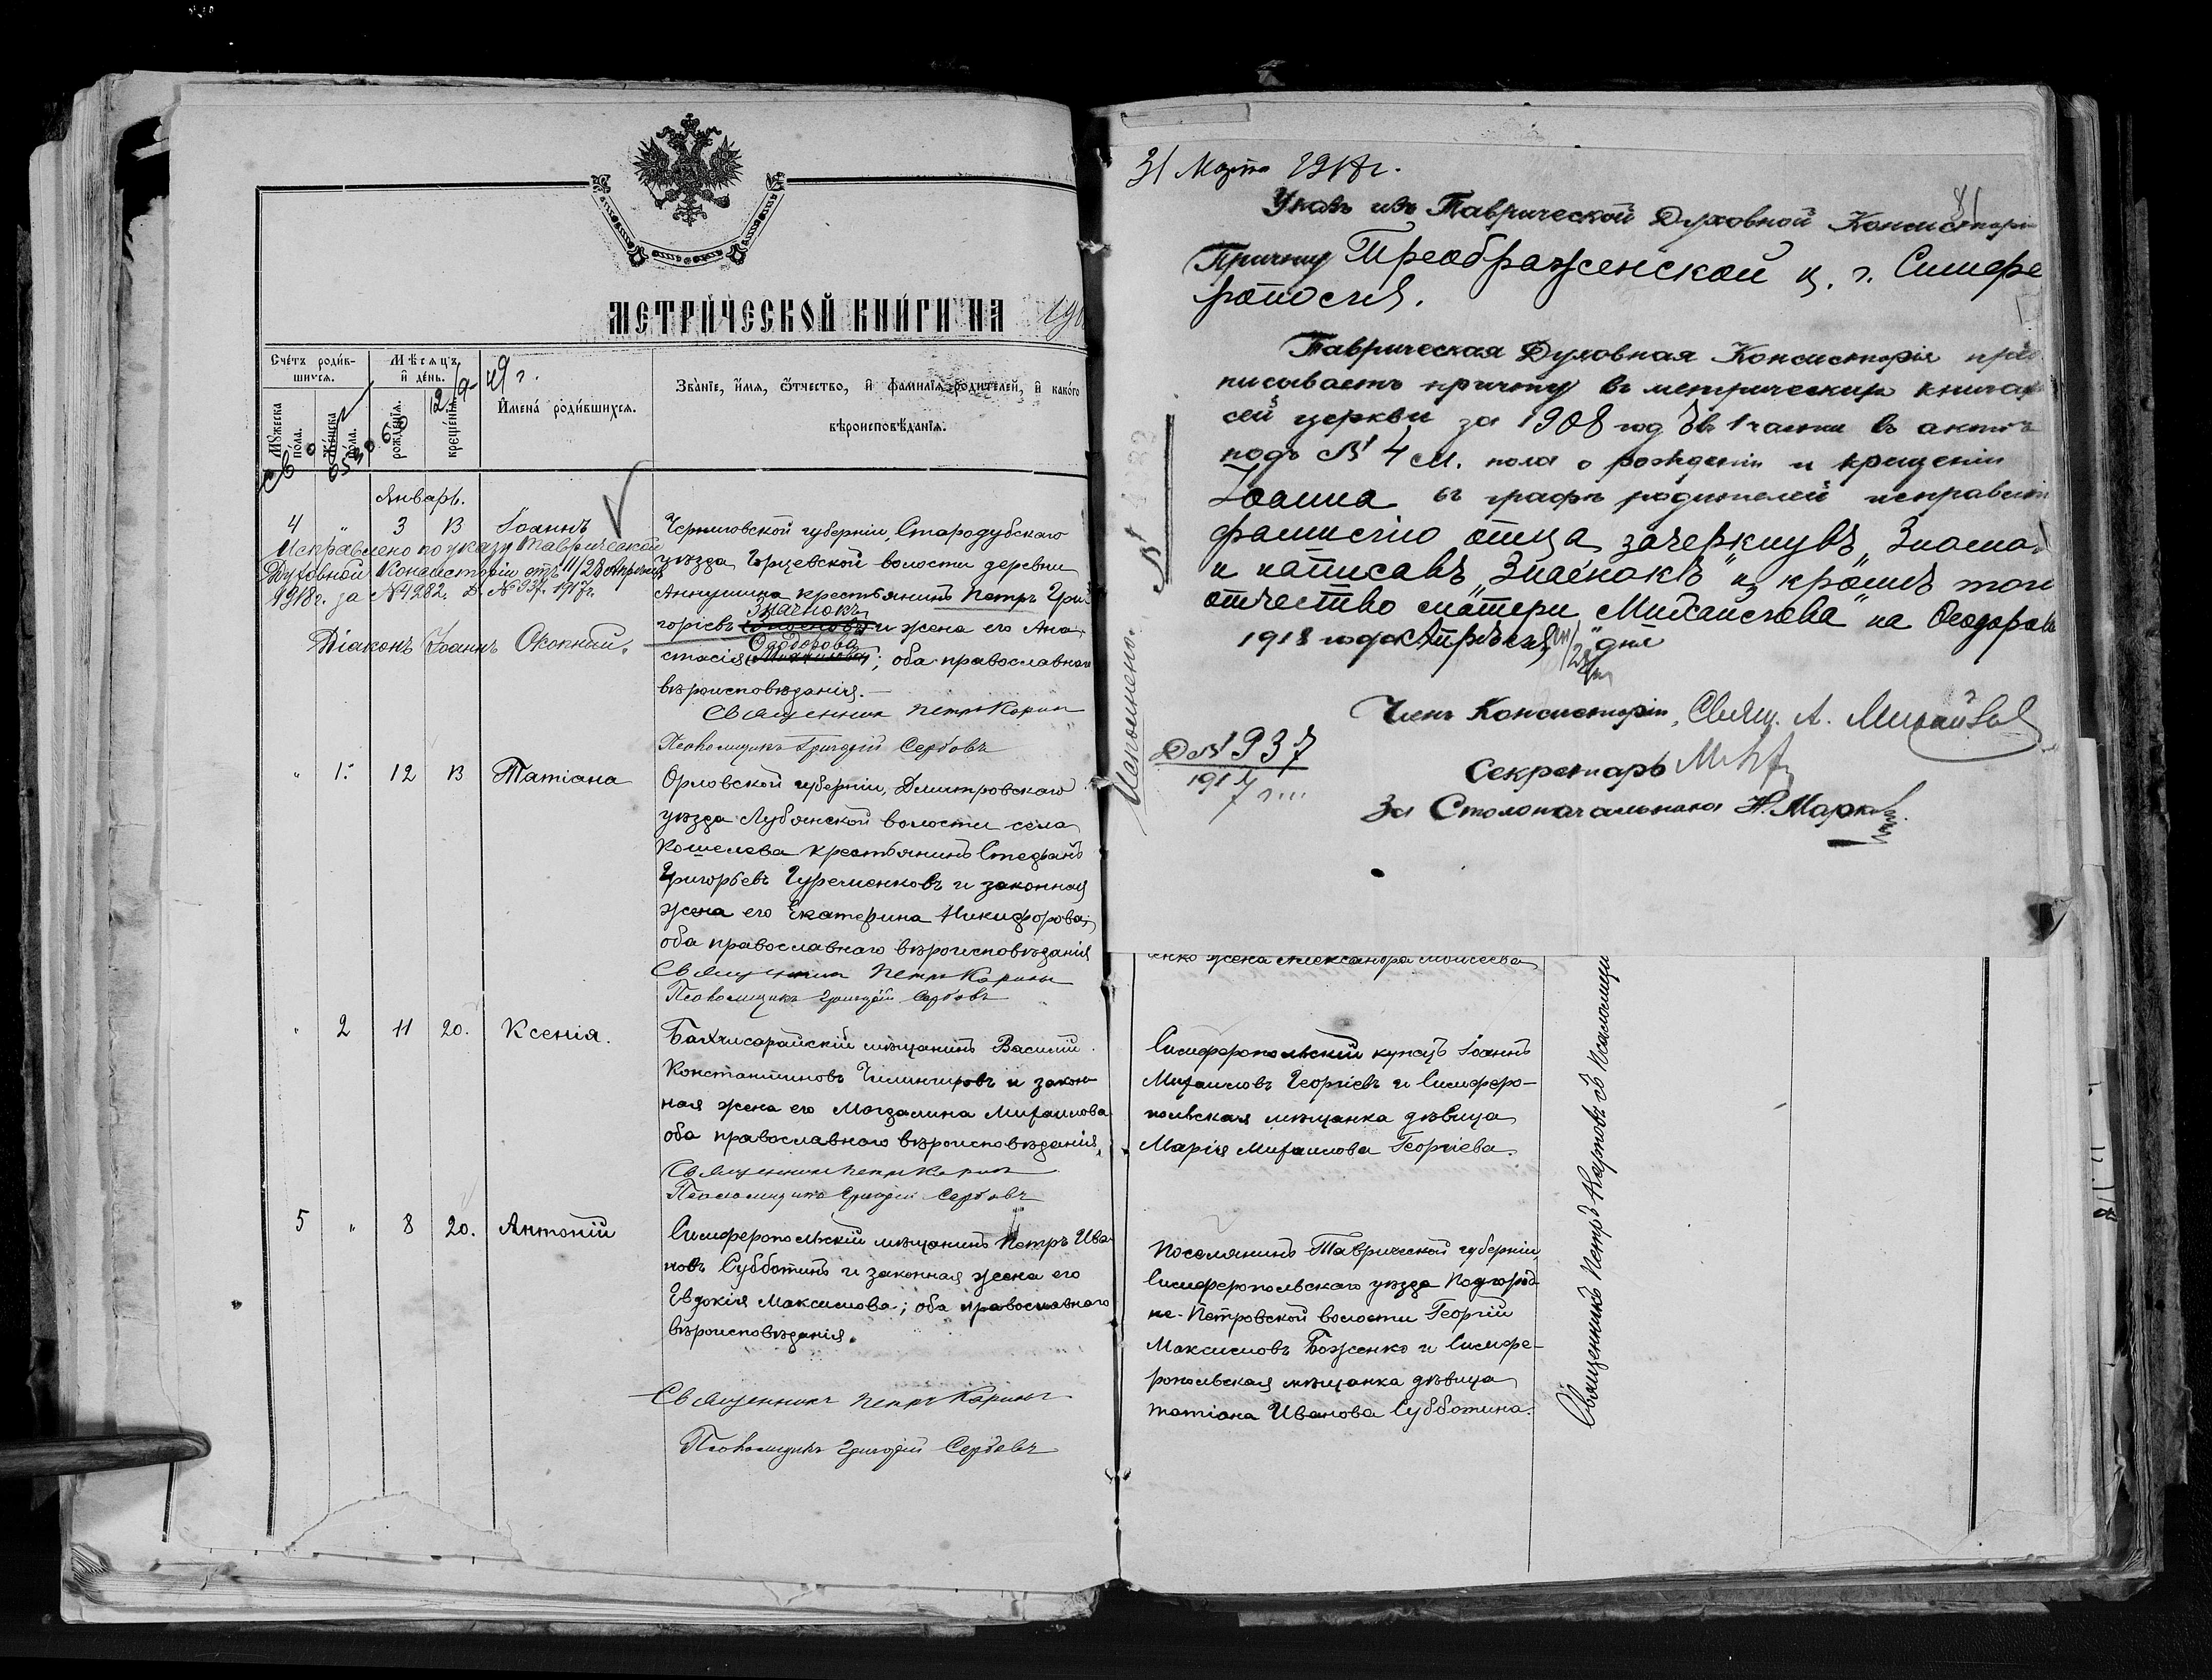 МЕТРИЧЕСКОЙ КНИГИ НА 190
Счетъ родив-
шихся.
Мѣсяцъ
и день.
Мужеска
пола.
Женска
пола.
рожденія.
крещенія.
Имена родившихся.
Званіе, имя, отчество, и фамилія родителей, и какого
вѣроисповѣданія.
Январь.
4 " 3 13 Іоаннъ
Черниговской губерніи, Стародубскаго
уѣзда, волости деревни
крестьянинъ Петръ Гри-
Значнокъ
горіевъ и жена его Ана-
Ѳеодорова
стасія Михаилова; оба православнаго
вѣроисповѣданія.
Священникъ Петръ
Псаломщикъ Григорій Сербовъ
Исправлено по указу Таврической
Духовной Консисторіи отъ 11/28 Апрѣля
1918 г. за № 4282. Д. № 937. 1917 г.
Діаконъ Іоаннъ Оконный.
" 1. 12 13 Татіана
Орловской губерніи, Дмитровскаго
уѣзда Лубянской волости села
Кошелева крестьянинъ Стефанъ
Григорьевъ и законная
жена его Екатерина Никифорова;
оба православнаго вѣроисповѣданія
Священникъ Петръ
Псаломщикъ Григорій Сербовъ
" 2 11 20. Ксенія.
Бахчисарайскій мѣщанинъ Василій
Константиновъ Чилингировъ и закон-
ная жена его Магдалина Михаилова
оба православнаго вѣроисповѣданія.
Священникъ Петръ
Псаломщикъ Григорій Сербовъ
5 " 8 20. Антоній
Симферопольскій мѣщанинъ Петръ Ива-
новъ Субботинъ и законная жена его
Евдокія Максимова; оба православнаго
вѣроисповѣданія.
Священникъ Петръ
Псаломщикъ Григорій Сербовъ
31 Марта 1918 г.
81
Указъ изъ Таврической Духовной Консисторіи
Причту Преображенской ц. г. Симфе
рополя.
Таврическая Духовная Консисторія пред
писываетъ причту въ метрическихъ книгах
сей церкви за 1908 годъ въ 1 части въ актѣ
подъ № 4 м. пола о рожденіи и крещеніи
Іоанна въ графѣ родителей исправить
фамилію отца, зачеркнувъ
и написавъ и, кромѣ того
отчество матери „Михайлова" на Ѳеодоров
1918 года Апрѣля 11/28 дня
Членъ Консисторіи, Свящ. А.
Секретарь
За Столоначальника Н. Марков
Д № 937
1917
Исполнено
енко жена Александра Моисеева
Симферопольскій купецъ Іоаннъ
Михаиловъ Георгіевъ и Симферо-
польская мѣщанка дѣвица
Марія Михаилова Георгіева.
Поселянинъ Таврической губерніи,
Симферопольскаго уѣзда Подгород-
не-Петровской волости Георгій
Максимовъ Боженко и Симфе-
ропольская мѣщанка дѣвица
Татіана Иванова Субботина.
Священникъ Петръ съ Псаломщи